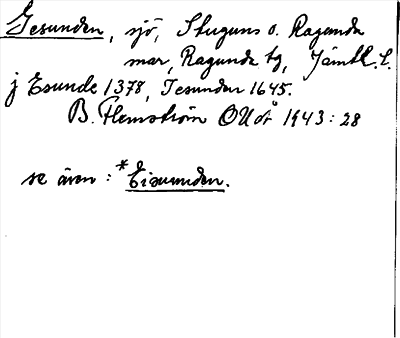 Gesunden, sjö, Stuguns o. Ragunda
mar, Ragunda tg, Jämtl. l.
j Esunde 1378, Jesunden 1645.
B. Flemström OUÅ 1943:28
se även: *Eisunden.